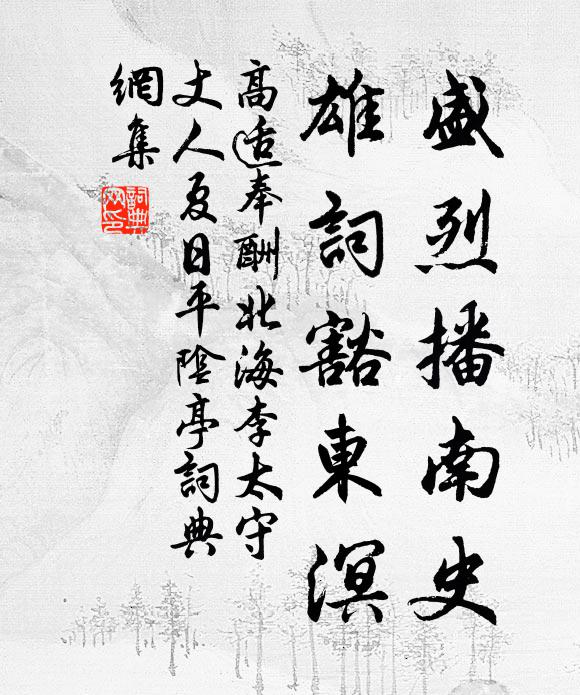 盛烈播南史
雄詞豁東溟
高適奉酬北海李太守
丈人夏日平陰亭詞典
網集
詞典網印